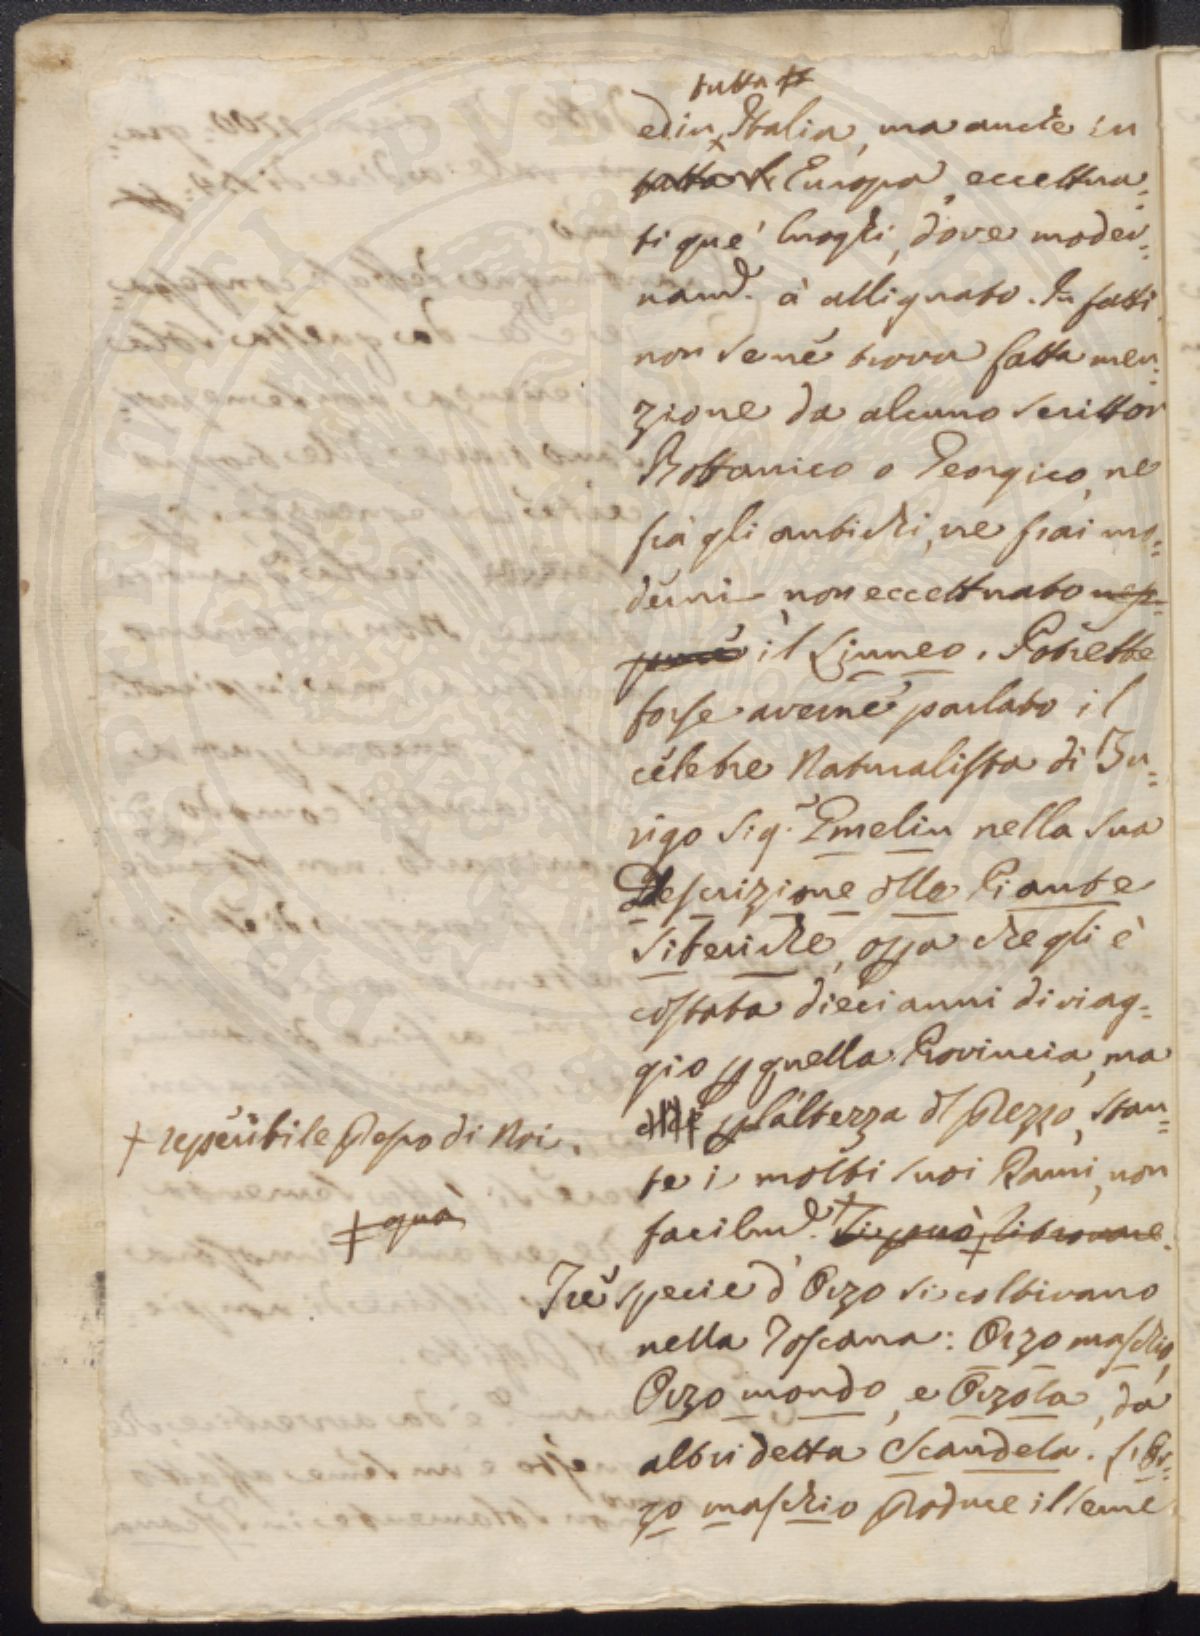 tutta
ed in Italia, ma anche in
tutta l' Europa, eccettua=
ti que' luoghi, dove moder=
namte. à allignato. In fatti
non sene trova fatta men=
zione da alcuno scrittor
Bottanico o Georgico, ne
frà gli antichi, ne frai mo=
derni non eccettuato nep=
pure il Linneo. Potrebbe
forse averne parlato il
celebre Naturalista di Zu=
rigo Sig.r Gmelin nella sua
Descrizione dlle Piante
Siberiche, oppa che gli è
costata dieci anni di viag=
gio p quella Provincia, ma
che p l'altezza dl prezzo, stan=
te i molti suoi Rami, non
facilmte. + si può ritrovare.
+ reperibile presso di Noi.
+ quà
Trè specie d'Orzo si coltivano
nella Toscana: Orzo maschio,
Orzo mondo, e Orzola, da
altri detta Scandela. L'Or=
zo maschio produce il seme